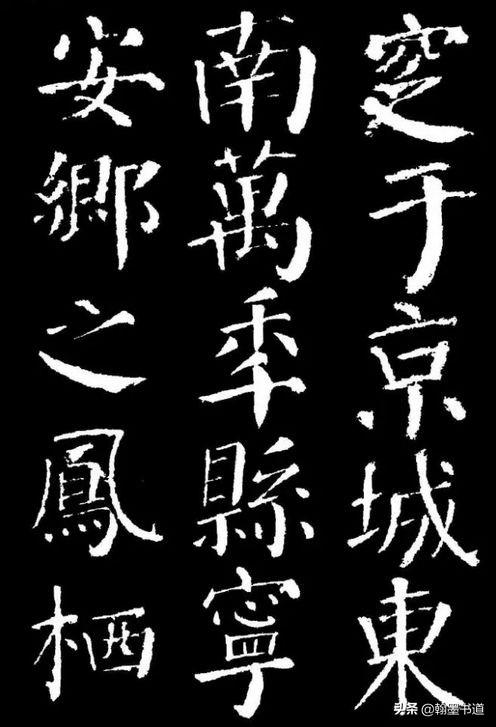 窆于京城東
南萬秊縣寧
安鄉之鳳栖
头条 @翰墨书道